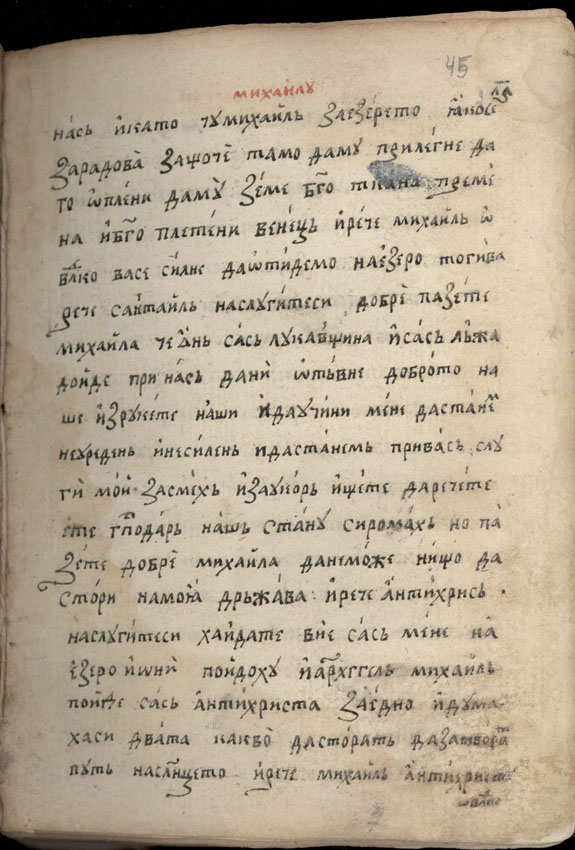 45
михаилу
нась и като чу михаиль за езерето како се
зарадова защоте тамо да му прилегне да
го ѿплени да му земе бг҃о ткана преме
на и бг҃о плетени венець и рече михаиль ѡ
влⷣко васе силне да ѿтидемо на езеро тогива
рече самтаиль на слугите си добре пазете
михаила че ѡнь сась лукавщина и сась лъжа
дойде при нась да ни ѿтъвне доброто на
ше из рукете наши и да учини мене да стане
неуредень и несилень и да станемь при вась слу
ги мои за смехь и за укорь и щете да речете
сте господарь нашь стану сиромахь но па
зете добре михаила да не може нищо да
стори на моꙗ дрьжава и рече антихрись
на слугите си хайдате вие сась мене на
езеро и ѡни пойдоху и архгг҃ель михаиль
пойде сась антихриста заедно и дума
хаси двата какво да сторать да затворⷶт
путь на слн҃цето и рече михаиль антихристе
ѡ влⷣко